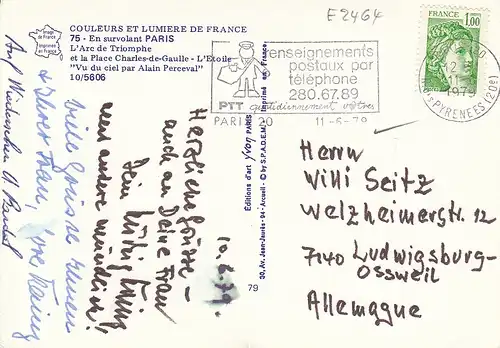 E2464
COULEURS ET LUMIERE DE FRANCE
75 - En survolant PARIS
L'Arc de Triomphe
et la Place Charles-de-Gaulle - L'Etoile
"Vu du ciel par Alain Perceval"
10/5606
Imprimé en France
renseignements
postaux par
téléphone
280.67.89
PTT quotidiennement vôtres
PARIS 20 11-6-79
1,00
12
11
1979
PYRENEES (20e)
Editions d'art yvon PARIS
30, Av. Jean-Jaurès - 94 - Arcueil - © by S.P.A.D.E.M. Imprimé en France.
79
10.6.79.
Herzliche Grüsse -
auch an Deine Frau
Dein
Viele Grüsse
Auf Wiedersehen
Herrn
Willi Seitz
Welzheimerstr. 12
7140 Ludwigsburg-
Ossweil
Allemagne